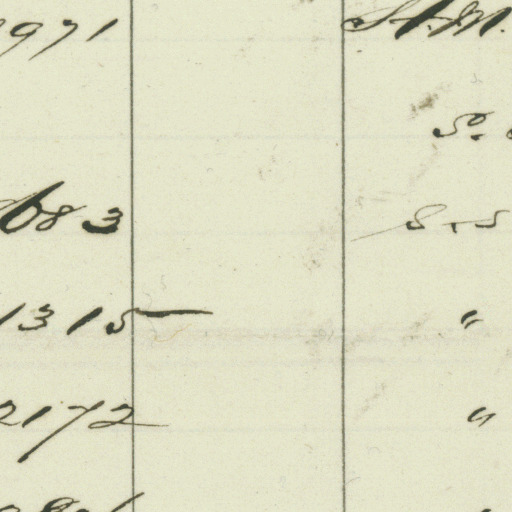 971 St. M.
So.
683 S. S
1315 "
2172 "